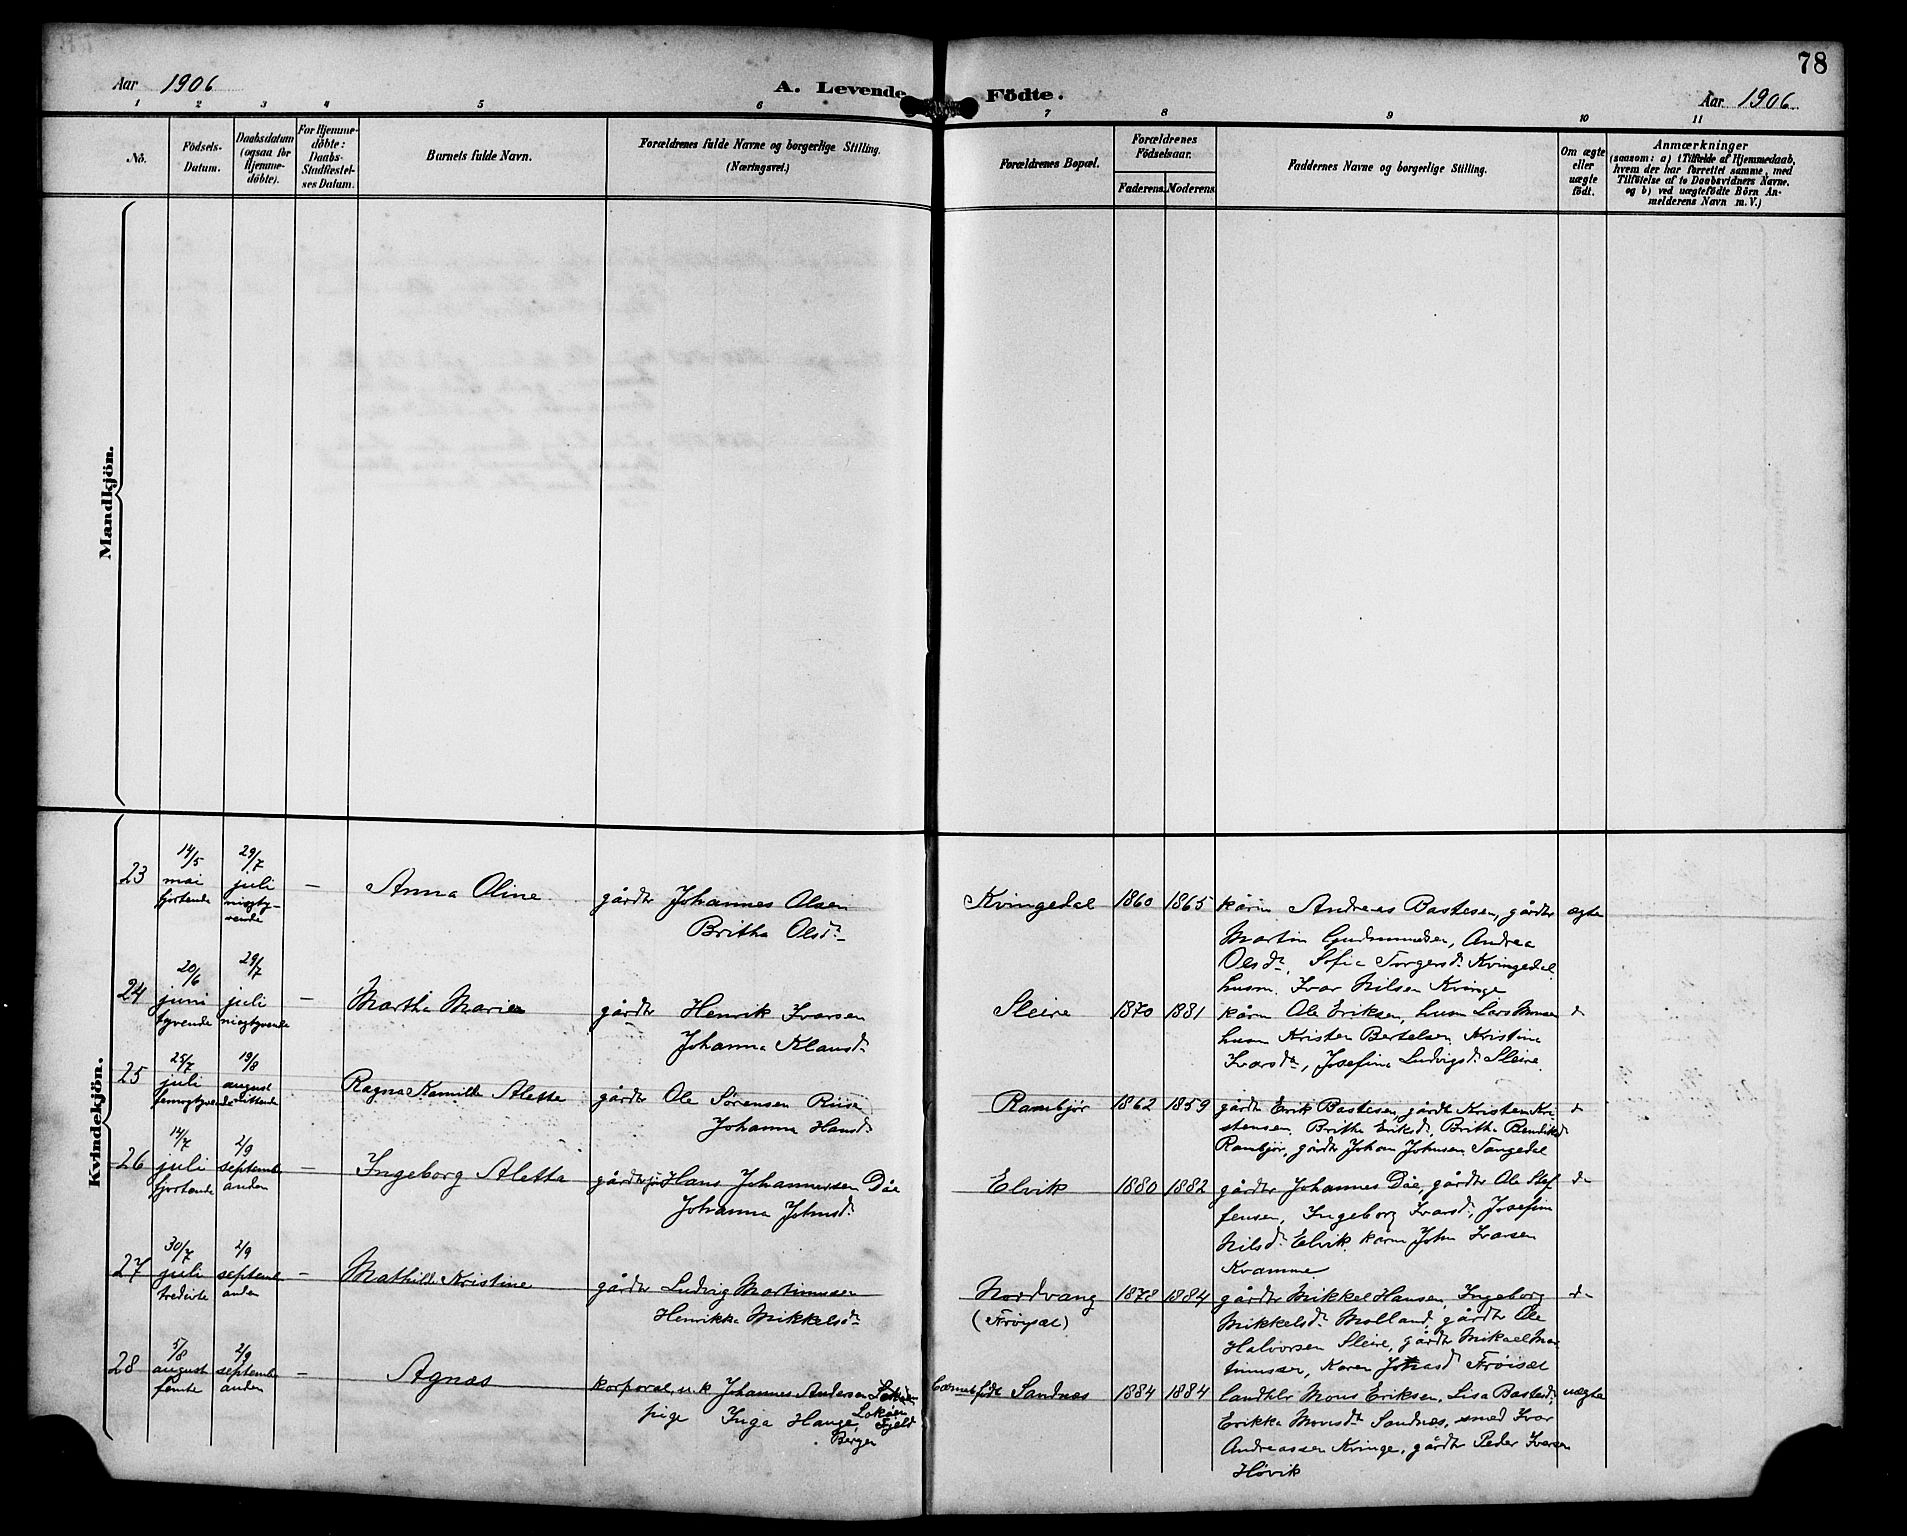 78
Aar 1906
A. Levende Födte.
Aar 1906
1 2 3 4 5 6 7 8 9 10 11
No.
Födsels-
Datum.
Daabsdatum
(ogsaa for
Hjemme-
döbte).
For Hjemme-
döbte:
Daabs-
Stadfæstel-
ses Datum.
Barnets fulde Navn.
Forældrenes fulde Navne og borgerlige Stilling.
(Næringsvei.)
Forældrenes Bopæl.
Forældrenes
Födselsaar.
Faderens. Moderens.
Faddernes Navne og borgerlige Stilling.
Om ægte
eller
uægte
födt.
Anmærkninger
(saasom: a) i Tilfælde af Hjemmedaab,
hvem der har forrettet samme, med
Tilföielse af to Daabsvidners Navne,
og b) ved uægtefödte Börn An-
melderens Navn m. V.)
Mandkjön.
Kvindekjön.
23
14/5
mai
fjortende
29/7
juli
niogty-
vende
—
Anna Oline
gårdbr Johannes Olsen
Britha Olsdr
Kvingedal
1860 1865
kårm Andreas Bastesen, gårdbr
Martin Gudmundsen, Andrea
Olsdr, Sofie Torgersdr Kvingedal
husm. Ivar Nilsen Kvinge
ægte
24
20/6
juni
tyvende
29/7
juli
niogtyvende
—
Martha Marie
gårdbr Henrik Ivarsen
Johanna Klausdr
Sleire
1870 1881
kårm Ole Eriksen, husm Lars Monsen
husm Kristen Bertelsen, Kristine
Ivarsdr, Josefine Ludvigsdr Sleire.
d
25
25/7
juli
femogtyvende
19/8
august
nittende
Ragna Kamilla Aletta
gårdbr Ole Sørensen Riise
Johanna Hansdr
Rambjør
1862 1859
gårdbr Erik Bastesen, gårdbr Kristen Kri
stensen, Britha Eriksdr, Britha Bendiksdr
Rambjør, gårdbr Johan Johnsen Tangedal
d
26
14/7
juli
fjortende
2/9
septembr
anden
—
Ingeborg Aletta
gårdbr Hans Johannessen Dåe
Johanna Johnsdr
Elvik
1880 1882
gårdbr Johannes Dåe, gårdbr Ole Stef
fensen, Ingeborg Ivarsdr, Josefine
Nilsdr Elvik, kårm John Ivarsen
Kvamme
d
27
30/7
juli
tredivte
2/9
septembr
anden
—
Mathilde Kristine
gårdbr Ludvig Martinussen
Henrikka Mikkelsdr
Nordvang
(Frøiset)
1872 1884
gårdbr Mikkel Hansen, Ingeborg
Mikkelsdr Molland, gårdbr Ole
Halvorsen Sleire, gårdbr Mikael Mar
tinussen, Karen Johnsdr Frøiset
d
28
5/8
august
femte
2/9
septembr
anden
—
Agnæs
korporal, u.k Johannes Andersen
pige Inga Hauge, Lokøen Fjeld
Bergen
Barnet født Sandnæs
1884 1884
landhlr Mons Eriksen, Lisa Bastesdr,
Erikka Monsdr Sandnæs, smed Ivar
Andreassen Kvinge, gårdbr Peder Ivarsen
Høvik
uægte